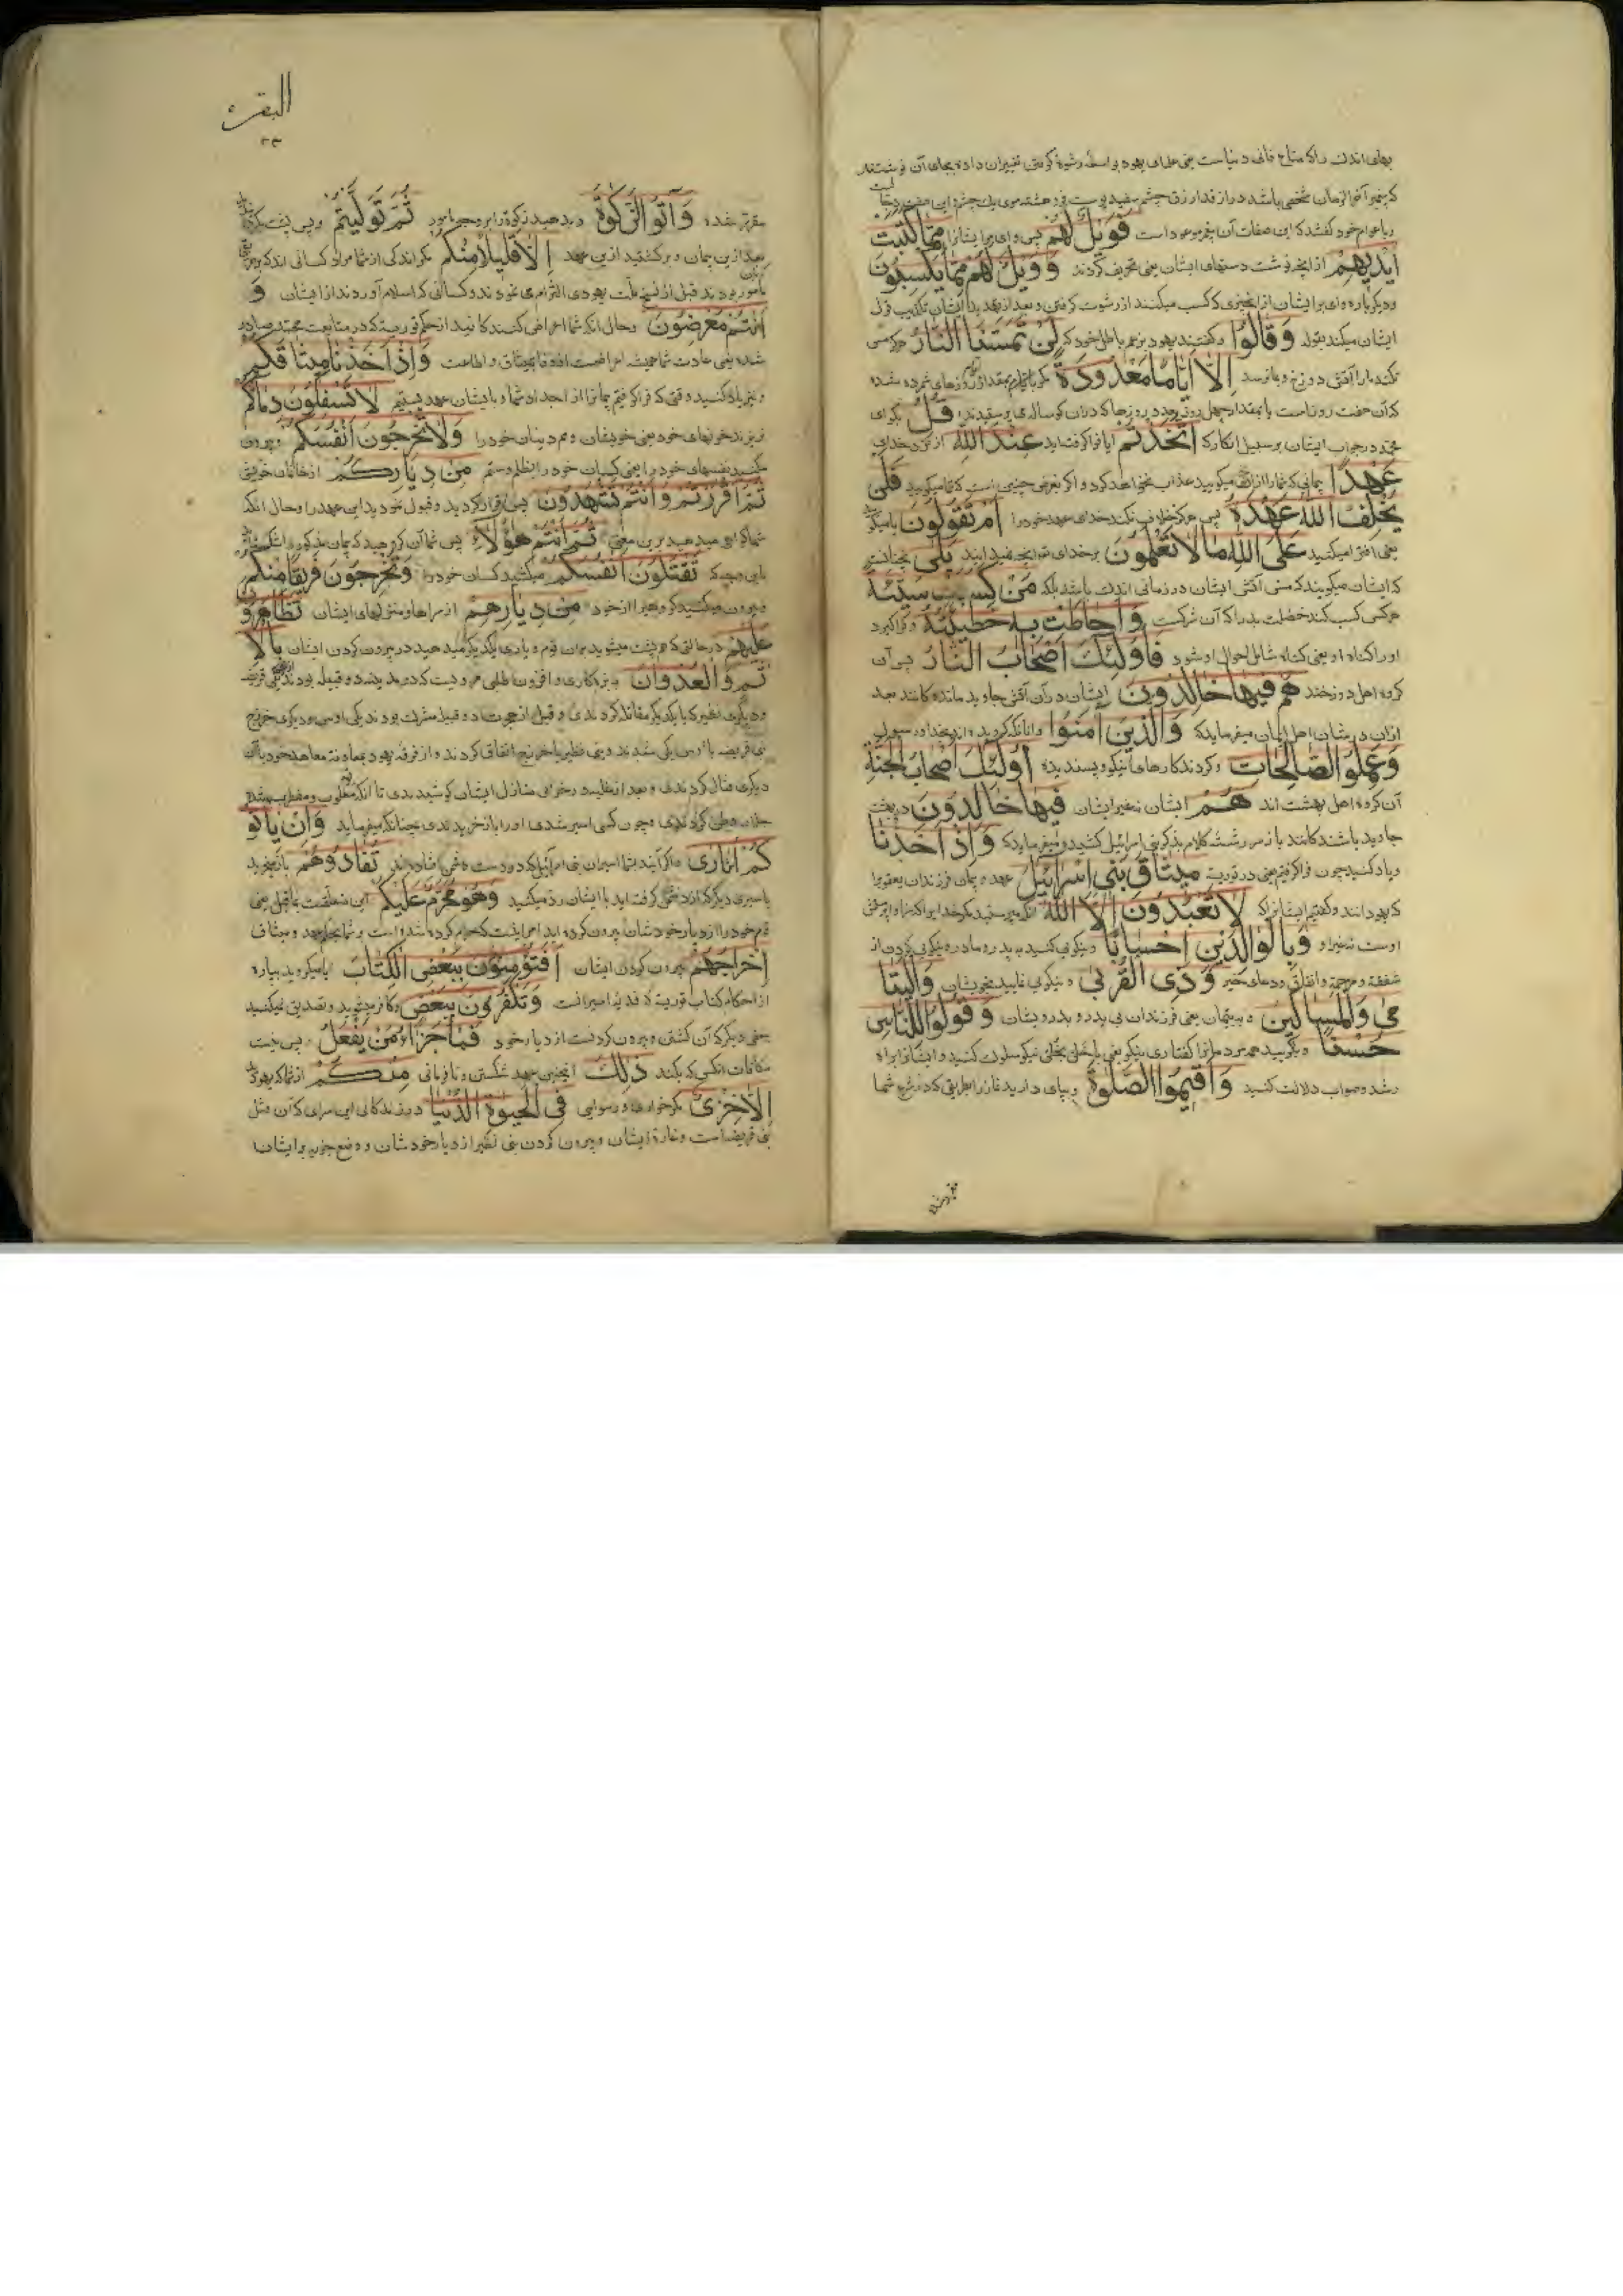 بهای اندک را که متاع فانی دنیاست یعنی علمای یهود بواسطه رشوه گرفتن تغییر آن داده بجای آن نوشتند
که پیغمبر آخر الزمان شخصی باشد دراز قد ازرق چشم سفید پوست
و با عوام خود گفتند که این صفات آن پیغمبر موعود است فَوَيْلٌ لَهُمْ پس وای مر ایشانرا مِمَّا كَتَبَتْ
أَيْدِيهِمْ از آنچه نوشت دستهای ایشان یعنی تحریف کردند وَ وَيْلٌ لَهُمْ مِمَّا يَكْسِبُونَ
و دیگر باره وای بر ایشان از آنچیزی که کسب میکنند از رشوت گرفتن و بعد از
ایشان میکند بقوله وَقَالُوا و گفتند یهود بزعم باطل خود که لَنْ تَمَسَّنَا النَّارُ هرگز مس
نکند ما را آتش دوزخ و بما نرسد إِلَّا أَيَّامًا مَعْدُودَةً مگر روزهای شمرده شده
که آن هفت روز است یا بمقدار چهل روز که دران گوساله می پرستیدند قُلْ بگو ای
محمد در جواب ایشان بر سبیل انکار که أَتَّخَذْتُمْ آیا فرا گرفته اید عِنْدَ اللَّهِ از نزد خدای
عَهْدًا پیمانی که شما را از آنچه میگویید عذاب نخواهد کرد و اگر بفرض چنین است که شما میگویید فَلَنْ
يُخْلِفَ اللَّهُ عَهْدَهُ پس هرگز خلاف نکند خدای عهد خود را أَمْ تَقُولُونَ یا میگویید
یعنی افترا میکنید عَلَى اللَّهِ مَا لَا تَعْلَمُونَ بر خدای آنچه نمیدانید بَلَى نچنانست
که ایشان میگویند که مس آتش ایشان در زمانی اندک باشد بلکه مَنْ كَسَبَ سَيِّئَةً
هر کس کسب کند خصلت بد را که آن شرکست وَأَحَاطَتْ بِهِ خَطِيئَتُهُ و فرا گیرد
او را گناه او یعنی گناه شامل احوال او شود فَأُولَئِكَ أَصْحَابُ النَّارِ پس آن
گروه اهل دوزخند هُمْ فِيهَا خَالِدُونَ ایشان در آن آتش جاوید مانده گانند بعد
ازان در شان اهل ایمان میفرماید که وَالَّذِينَ آمَنُوا و آنانکه گرویده اند بخدا و رسول
وَعَمِلُوا الصَّالِحَاتِ و کردند کارهای نیکو و پسندیده أُولَئِكَ أَصْحَابُ الْجَنَّةِ
آن گروه اهل بهشت اند هُمْ ایشان نه غیر ایشان فِيهَا خَالِدُونَ در بهشت
جاوید باشندگانند باز سر رشته کلام بذکر بنی اسرائیل کشیده میفرماید که وَإِذْ أَخَذْنَا
و یاد کنید چون فرا گرفتیم یعنی در توریت مِيثَاقَ بَنِي إِسْرَائِيلَ عهد و پیمان فرزندان یعقوب را
که یهودانند و گفتیم ایشانرا که لَا تَعْبُدُونَ إِلَّا اللَّهَ آنکه نپرستید مگر خدایرا که سزاوار پرستش
اوست نه غیر او وَبِالْوَالِدَيْنِ إِحْسَانًا و نیکوئی کنید به پدر و مادر و نیکوئی کردن از
شفقت و مرحمت و انفاق و دعای خیر وَذِي الْقُرْبَى و نیکوئی نمایید بخویشان وَالْيَتَا
مَى وَالْمَسَاكِينِ و به یتیمان یعنی فرزندان بی پدر و بدرویشان وَقُولُوا لِلنَّاسِ
حُسْنًا و بگویید همه مردمانرا گفتاری نیکو یعنی نیکو سلوک کنید و ایشانرا براه
رشد و صواب دلالت کنید وَأَقِيمُوا الصَّلَوةَ و بپای دارید نماز را بطریقی که در شرع شما
البقره
۲۳
مقرر شده وَآتُوا الزَّكَوةَ و بدهید زکوة را بر وجه مأمور ثُمَّ تَوَلَّيْتُمْ پس پشت
بعد ازین پیمان و برگشتید ازین عهد إِلَّا قَلِيلًا مِنْكُمْ مگر اندکی از شما مراد کسانی اند که
بودند قبل از نسخ ملت یهودی التزام می نمودند و کسانی که اسلام آوردند از ایشان وَ
أَنْتُمْ مُعْرِضُونَ و حال آنکه شما اعراض کنندگانید از حکم توریة که در متابعت محمد صادر
شده یعنی عادت شما همیشه اعراضست از وفا بمیثاق و اطاعت وَإِذْ أَخَذْنَا مِيثَاقَكُمْ
و نیز یاد کنید وقتی که فرا گرفتیم پیمانرا از اجداد شما و با ایشان عهد بستیم لَا تَسْفِكُونَ دِمَاءَكُمْ
نریزند خونهای خود یعنی خویشان و هم دینان خود را وَلَا تُخْرِجُونَ أَنْفُسَكُمْ و بیرون
نکنید نفسهای خود را یعنی کسان خود را بظلم و ستم مِنْ دِيَارِكُمْ از خانمان خویش
ثُمَّ أَقْرَرْتُمْ وَأَنْتُمْ تَشْهَدُونَ پس اقرار کردید و قبول نمودید این عهد را و حال آنکه
شما گواهی میدهید برین معنی ثُمَّ أَنْتُمْ هَؤُلَاءِ پس شما آن گروهید که پیمان مذکور را
تَقْتُلُونَ أَنْفُسَكُمْ میکشید کسان خود را وَتُخْرِجُونَ فَرِيقًا مِنْكُمْ
و بیرون میکنید گروهی را از خود مِنْ دِيَارِهِمْ از سراها و منزلهای ایشان تَظَاهَرُونَ
عَلَيْهِمْ در حالتی که هم پشت میشوید بر آن قوم و یاری یکدیگر میدهید در بیرون کردن ایشان بِالْإِ
ثْمِ وَالْعُدْوَانِ به بزه کاری و افزون طلبی مرویست که در مدینه دو قبیله بودند یکی قریظه
و دیگری نضیر که با یکدیگر مقاتله کردندی و قبل از هجرت دو قبیله مشرک بودند یکی اوس و دیگری خزرج
بنی قریظه با اوس یکی شدند و بنی نضیر با خزرج اتفاق کردند و از فرقه یهود بمعاونت معاهد خود با آن
دیگری قتال کردندی و بعد از غلبه در خرابی منازل ایشان کوشیدندی تا آنکه مغلوب و مضطرب شده
جلای وطن کردندی و چون کسی اسیر شدی او را باز خریدندی چنانکه میفرماید وَإِنْ يَأْتُو
كُمْ أُسَارَى و اگر آیند بشما اسیران بنی اسرائیل که در دست دشمن افتاده اند تُفَادُوهُمْ باز خرید
یا اسیری دیگر که از دشمن گرفته اید با ایشان رد میکنید وَهُوَ مُحَرَّمٌ عَلَيْكُمْ این متعلقست بما قبل یعنی
قوم خود را از دیار خودشان بیرون کرده اید
إِخْرَاجُهُمْ بیرون کردن ایشان أَفَتُؤْمِنُونَ بِبَعْضِ الْكِتَابِ آیا میگروید بپاره
از احکام کتاب توریة که فدیه اسیرانست وَتَكْفُرُونَ بِبَعْضٍ و کافر میشوید و تصدیق نمیکنید
بعضی دیگر که آن کشتن و بیرون کردنست از دیار خود فَمَا جَزَاءُ مَنْ يَفْعَلُ پس چیست
مکافات آنکس که بکند ذَلِكَ اینچنین عهد شکستن و نافرمانی مِنْكُمْ از شما که یهودید
إِلَّا خِزْيٌ مگر خواری و رسوایی فِي الْحَيَوةِ الدُّنْيَا در زندگانی این سرای که آن قتل
بنی قریظه است و غارت ایشان و بیرون کردن بنی نضیر از دیار خودشان و وضع جزیه بر ایشان